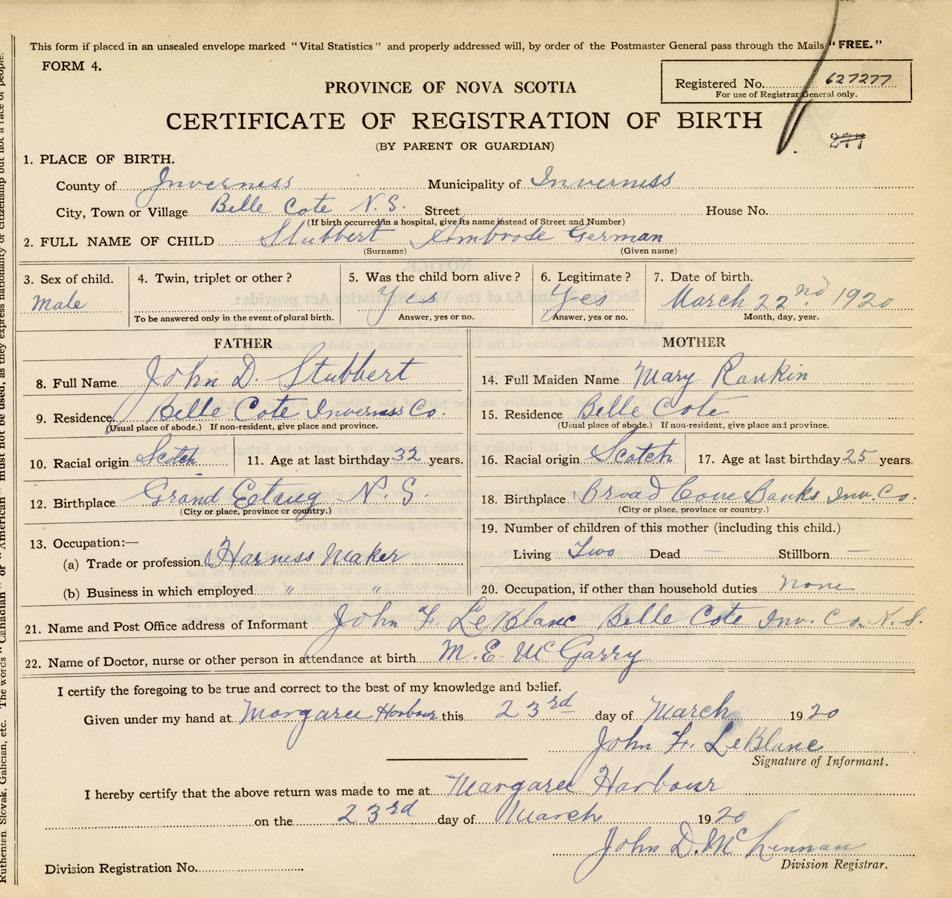 This form if placed in an unsealed envelope marked "Vital Statistics" and properly addressed will, by order of the Postmaster General pass through the Mails "FREE."
FORM 4.
Registered No. 627277
For use of Registrar General only.
PROVINCE OF NOVA SCOTIA
CERTIFICATE OF REGISTRATION OF BIRTH
(BY PARENT OR GUARDIAN)
1. PLACE OF BIRTH.
County of Inverness Municipality of Inverness
City, Town or Village Belle Cote N.S. Street House No.
(If birth occurred in a hospital, give its name instead of Street and Number)
2. FULL NAME OF CHILD Stubbert Ambrose German
(Surname) (Given name)
3. Sex of child. 4. Twin, triplet or other? 5. Was the child born alive? 6. Legitimate? 7. Date of birth.
Male Yes Yes March 22nd 1920
To be answered only in the event of plural birth. Answer, yes or no. Answer, yes or no. Month, day, year.
FATHER
8. Full Name John D. Stubbert
9. Residence Belle Cote Inverness Co.
(Usual place of abode.) If non-resident, give place and province.
10. Racial origin Scotch 11. Age at last birthday 32 years.
12. Birthplace Grand Etang N.S.
(City or place, province or country.)
13. Occupation:—
(a) Trade or profession Harness Maker
(b) Business in which employed " "
MOTHER
14. Full Maiden Name Mary Rankin
15. Residence Belle Cote
(Usual place of abode.) If non-resident, give place and province.
16. Racial origin Scotch 17. Age at last birthday 25 years.
18. Birthplace Broad Cove Banks Inv. Co.
(City or place, province or country.)
19. Number of children of this mother (including this child.)
Living Two Dead — Stillborn —
20. Occupation, if other than household duties none
21. Name and Post Office address of Informant John F. LeBlanc Belle Cote Inv. Co. N.S.
22. Name of Doctor, nurse or other person in attendance at birth M. E. McGarry
I certify the foregoing to be true and correct to the best of my knowledge and belief.
Given under my hand at Margaree Harbour this 23rd day of March 1920
John F. LeBlanc
Signature of Informant.
I hereby certify that the above return was made to me at Margaree Harbour
on the 23rd day of March 1920
John D. McLennan
Division Registrar.
Division Registration No.
Ruthenian, Slovak, Galician, etc. The words "Canadian" or "American" must not be used, as they express nationality or citizenship but not a race of people.